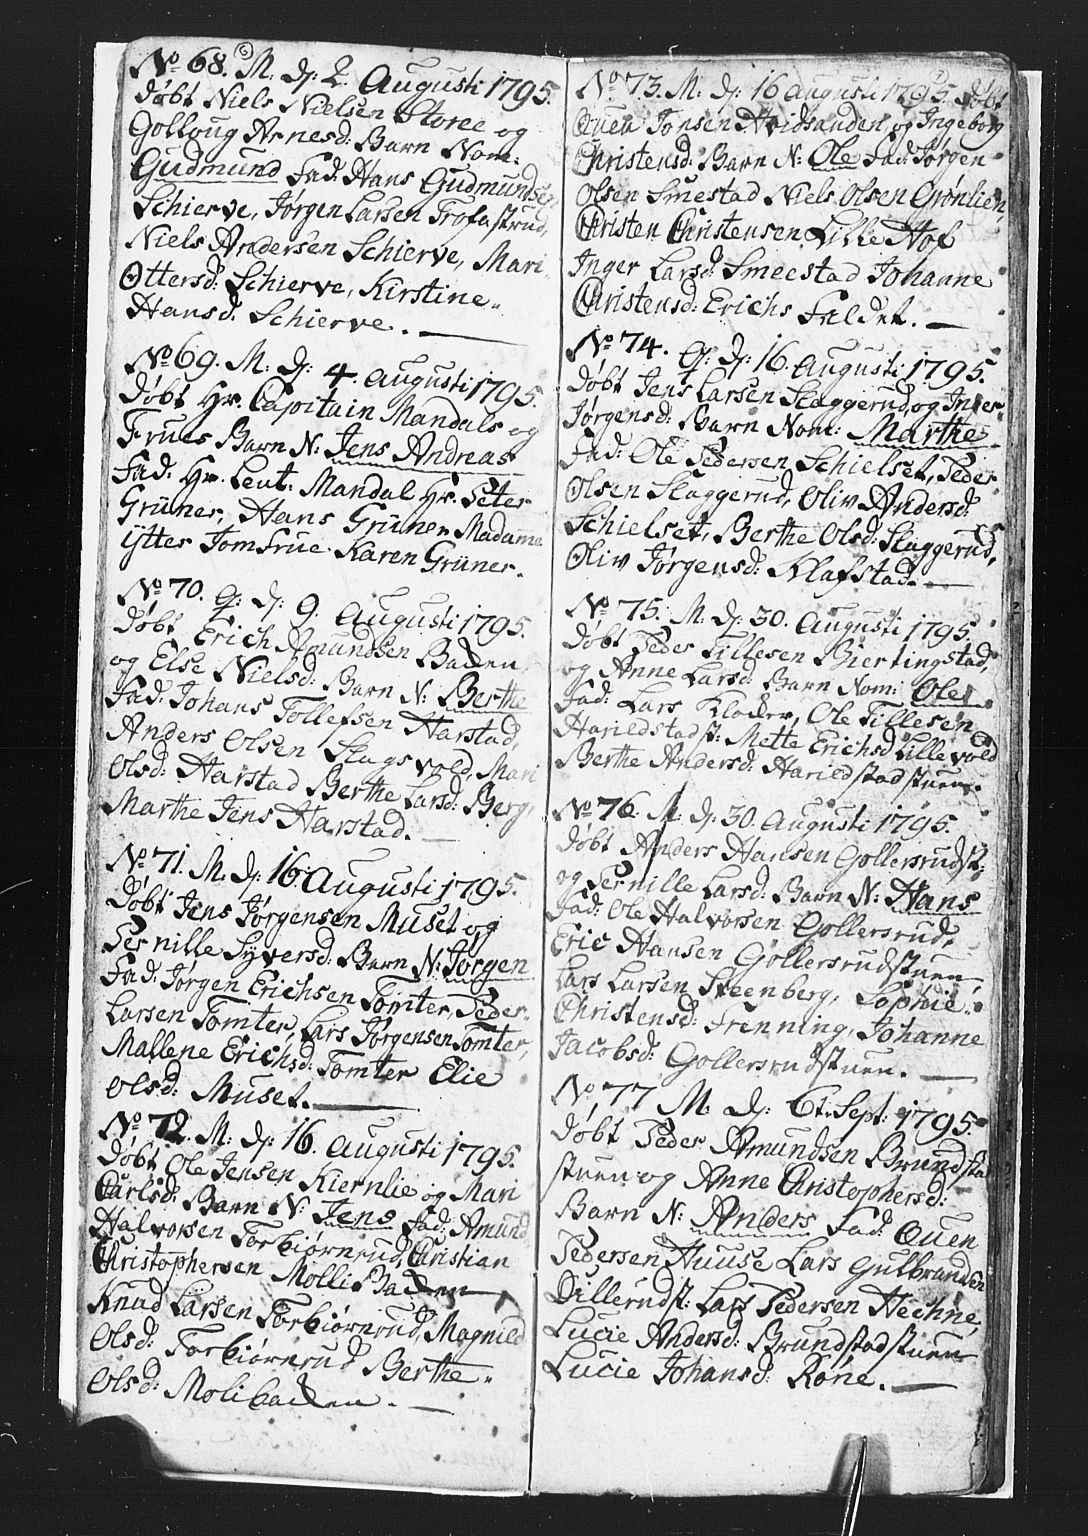 No 68. M. d: 2. Augusti 1795.
døbt Niels Nielsen Storee og
Golloug Arnesd: Barn Nom:
Gudmund Fad: Hans Gudmundsen
Schierve, Jørgen Larsen Trofastrud,
Niels Andersen Schierve, Mari
Ottersd: Schierve, Kirstine
Hansd: Schierve.
No 69. M. d: 4. Augusti 1795.
døbt Hr. Capitain Mandals og
Frues Barn N: Jens Andreas
Fad: Hr. Leut: Mandal Hr. Peter
Grüner, Hans Grüner Madame
ytter Jomfrue Karen Grüner.
No 70. q: d: 9. Augusti 1795.
døbt Erich Amundsen Baden,
og Else Nielsd: Barn N: Berthe
Fad: Johans Tollefsen Harstad,
Anders Olsen Slagsvold, Mari
Olsd: Harstad Berthe Larsd: Berg,
Marthe Jens Harstad.
No 71. M. d: 16 Augusti 1795.
døbt Jens Jørgensen Muset og
Pernille Syversd: Barn N: Jørgen
Fad: Jørgen Erichsen Tomter, Peder
Larsen Tomter, Lars Jørgensen Tomter,
Mallene Erichsd: Tomter Elie
Olsd: Muset.
No 72. M: d: 16. Augusti 1795.
døbt Ole Jensen Kiernlie og Mari
Carlsd: Barn N: Jens Fad: Amund
Halvorsen Torbiørnrud, Christian
Christophersen Molli Baden
Knud Larsen Torbiørnrud, Magnild
Olsd: Torbiørnrud Berthe
Olsd: Molibaden.
No 73. M. d: 16 Augusti 1795. døbt
Ouen Jonsen Hvidsanden og Ingeborg
Christensd: Barn N: Ole Fad: Jørgen
Olsen Smestad Niels Olsen Grønlien
Christen Christensen Lille Hof
Inger Larsd: Smeestad Johanne
Christensd: Erichs Faldet.
No 74. q: d: 16. Augusti 1795.
døbt Jens Larsen Slaggerud, og Inger
Jørgensd: Barn Nom: Marthe
Fad: Ole Pedersen Schielset, Peder
Olsen Slaggerud, Oliv Andersd:
Schielset, Berthe Olsd: Slaggerud,
Oliv Jørgensd: Klafstad.
No 75. M. d: 30. Augusti 1795.
døbt Peder Tillesen Biertingstad,
og Anne Larsd: Barn Nom: Ole
Fad: Lars Klocker, Ole Tillesen
Harildstadst: Mette Erichsd Lillevold
Berthe Andersd: Harildstadstuen.
No 76. M d: 30. Augusti 1795.
døbt Anders Hansen Gollersrudst:
og Pernille Larsd: Barn N: Hans
Fad: Ole Halvorsen Gollersrud,
Eric Hansen Gollersrudstuen
Lars Larsen Steenberg, Sophie
Christensd: Frenning, Johanne
Jacobsd: Gollersrudstuen.
No 77 M. d: 6t. Sept: 1795.
døbt Peder Amundsen Brundsta
stuen og Anne Christophersd:
Barn N: Anders Fad: Ouen
Pedersen Huuse Lars Gulbrandsen
Dillerudst: Lars Pedersen Hechne,
Lucie Andersd: Brundstadstuen
Lucie Johansd: Røne.